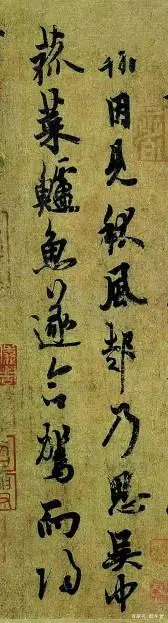 翰因見秋風起乃思吳中
菰菜鱸魚遂命駕而歸